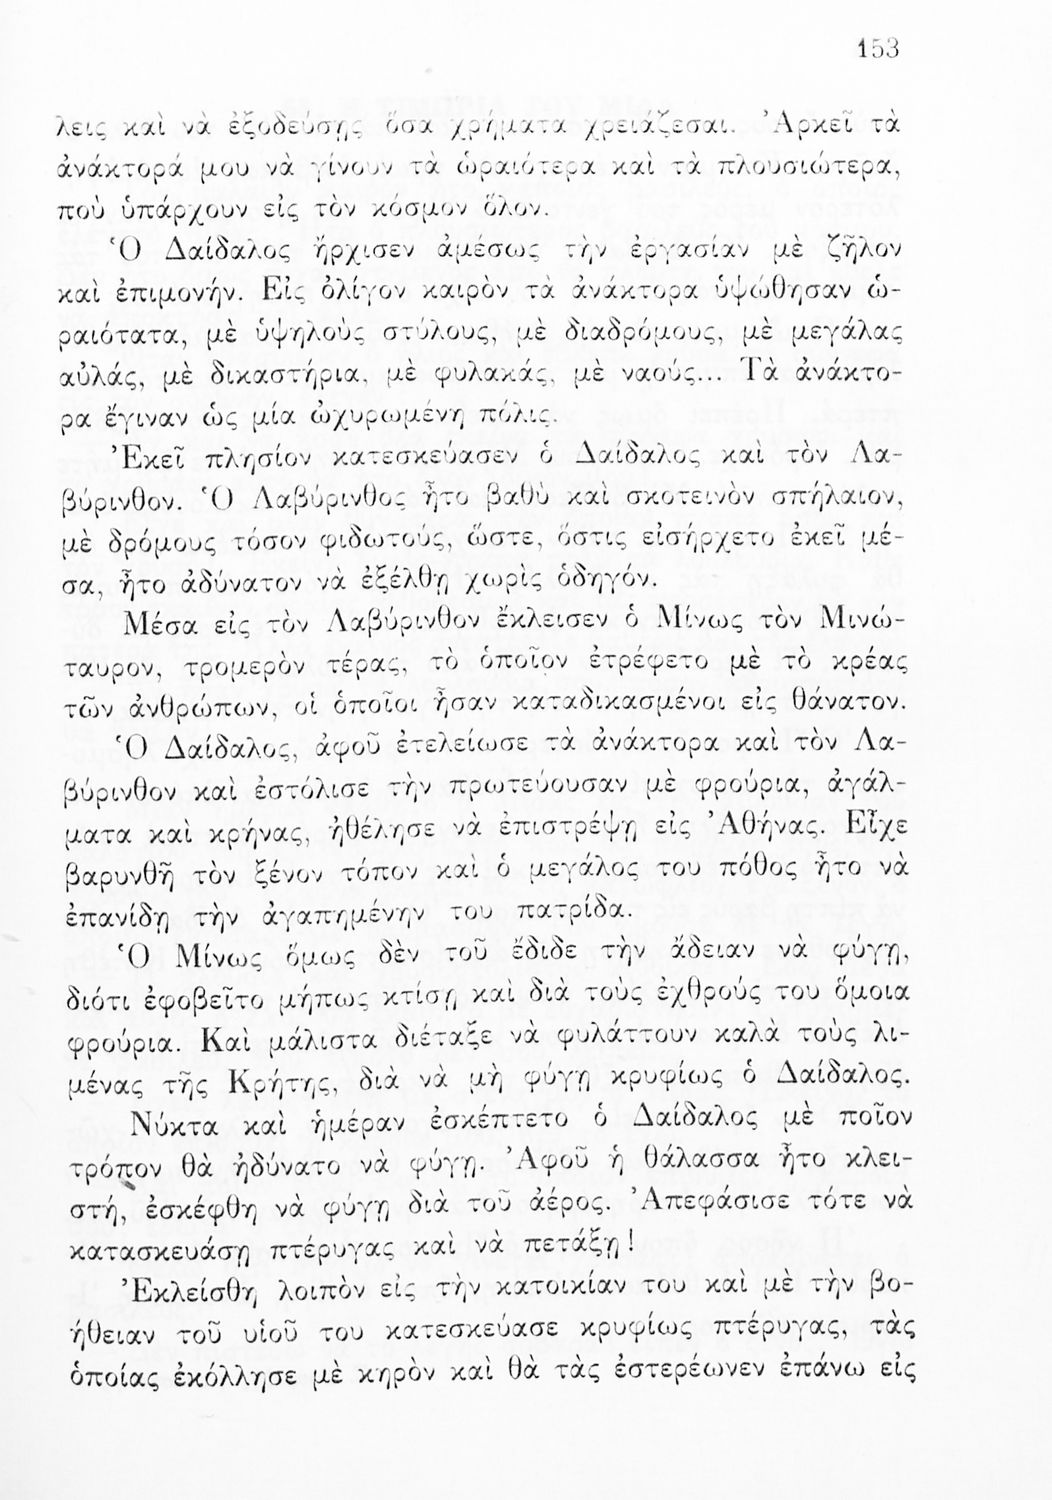 153
λεις καὶ νὰ ἐξοδεύσῃς ὅσα χρήματα χρειάζεσαι. Ἀρκεῖ τὰ
ἀνάκτορά μου νὰ γίνουν τὰ ὡραιότερα καὶ τὰ πλουσιώτερα,
ποὺ ὑπάρχουν εἰς τὸν κόσμον ὅλον.
Ὁ Δαίδαλος ἤρχισεν ἀμέσως τὴν ἐργασίαν μὲ ζῆλον
καὶ ἐπιμονήν. Εἰς ὀλίγον καιρὸν τὰ ἀνάκτορα ὑψώθησαν ὡ-
ραιότατα, μὲ ὑψηλοὺς στύλους, μὲ διαδρόμους, μὲ μεγάλας
αὐλάς, μὲ δικαστήρια, μὲ φυλακάς, μὲ ναούς... Τὰ ἀνάκτο-
ρα ἔγιναν ὡς μία ὠχυρωμένη πόλις.
Ἐκεῖ πλησίον κατεσκεύασεν ὁ Δαίδαλος καὶ τὸν Λα-
βύρινθον. Ὁ Λαβύρινθος ἦτο βαθὺ καὶ σκοτεινὸν σπήλαιον,
μὲ δρόμους τόσον φιδωτούς, ὥστε, ὅστις εἰσήρχετο ἐκεῖ μέ-
σα, ἦτο ἀδύνατον νὰ ἐξέλθῃ χωρὶς ὁδηγόν.
Μέσα εἰς τὸν Λαβύρινθον ἔκλεισεν ὁ Μίνως τὸν Μινώ-
ταυρον, τρομερὸν τέρας, τὸ ὁποῖον ἐτρέφετο μὲ τὸ κρέας
τῶν ἀνθρώπων, οἱ ὁποῖοι ἦσαν καταδικασμένοι εἰς θάνατον.
Ὁ Δαίδαλος, ἀφοῦ ἐτελείωσε τὰ ἀνάκτορα καὶ τὸν Λα-
βύρινθον καὶ ἐστόλισε τὴν πρωτεύουσαν μὲ φρούρια, ἀγάλ-
ματα καὶ κρήνας, ἠθέλησε νὰ ἐπιστρέψῃ εἰς Ἀθήνας. Εἶχε
βαρυνθῆ τὸν ξένον τόπον καὶ ὁ μεγάλος του πόθος ἦτο νὰ
ἐπανίδῃ τὴν ἀγαπημένην του πατρίδα.
Ὁ Μίνως ὅμως δὲν τοῦ ἔδιδε τὴν ἄδειαν νὰ φύγῃ,
διότι ἐφοβεῖτο μήπως κτίσῃ καὶ διὰ τοὺς ἐχθρούς του ὅμοια
φρούρια. Καὶ μάλιστα διέταξε νὰ φυλάττουν καλὰ τοὺς λι-
μένας τῆς Κρήτης, διὰ νὰ μὴ φύγῃ κρυφίως ὁ Δαίδαλος.
Νύκτα καὶ ἡμέραν ἐσκέπτετο ὁ Δαίδαλος μὲ ποῖον
τρόπον θὰ ἠδύνατο νὰ φύγῃ. Ἀφοῦ ἡ θάλασσα ἦτο κλει-
στή, ἐσκέφθη νὰ φύγῃ διὰ τοῦ ἀέρος. Ἀπεφάσισε τότε νὰ
κατασκευάσῃ πτέρυγας καὶ νὰ πετάξῃ!
Ἐκλείσθη λοιπὸν εἰς τὴν κατοικίαν του καὶ μὲ τὴν βο-
ήθειαν τοῦ υἱοῦ του κατεσκεύασε κρυφίως πτέρυγας, τὰς
ὁποίας ἐκόλλησε μὲ κηρὸν καὶ θὰ τὰς ἐστερέωνεν ἐπάνω εἰς